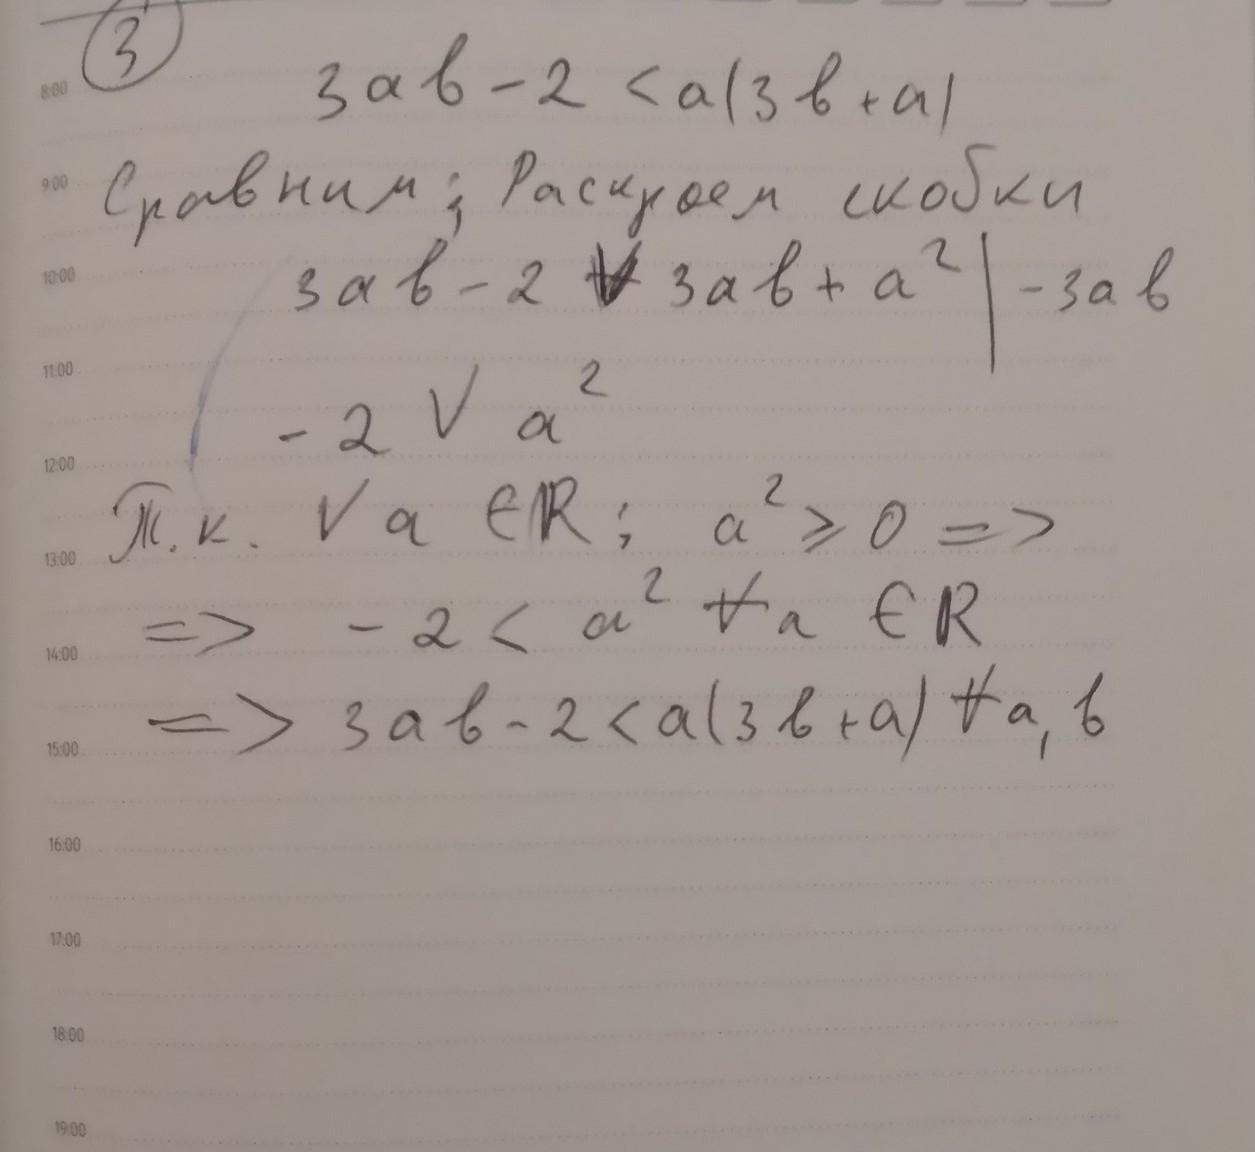 3
3ab - 2 < a(3b + a)
8:00
Сравним; Раскроем скобки
9:00
3ab - 2 ∨ 3ab + a² | - 3ab
10:00
11:00
-2 ∨ a²
12:00
Т.к. ∀ a ∈ ℝ; a² ⩾ 0 =>
13:00
=> -2 < a² ∀a ∈ ℝ
14:00
=> 3ab - 2 < a(3b + a) ∀a, b
15:00
16:00
17:00
18:00
19:00